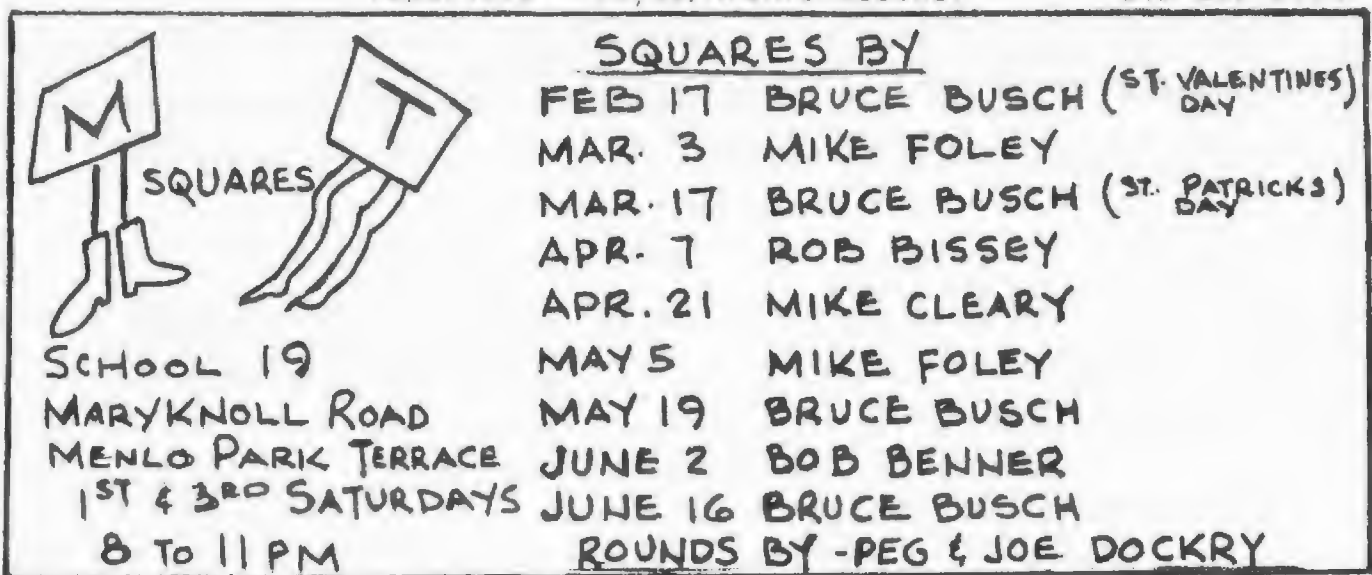 M SQUARES T
SCHOOL 19
MARYKNOLL ROAD
MENLO PARK TERRACE
1ST & 3RD SATURDAYS
8 TO 11 PM
SQUARES BY
FEB 17 BRUCE BUSCH (ST. VALENTINES DAY)
MAR. 3 MIKE FOLEY
MAR. 17 BRUCE BUSCH (ST. PATRICKS DAY)
APR. 7 ROB BISSEY
APR. 21 MIKE CLEARY
MAY 5 MIKE FOLEY
MAY 19 BRUCE BUSCH
JUNE 2 BOB BENNER
JUNE 16 BRUCE BUSCH
ROUNDS BY - PEG & JOE DOCKRY